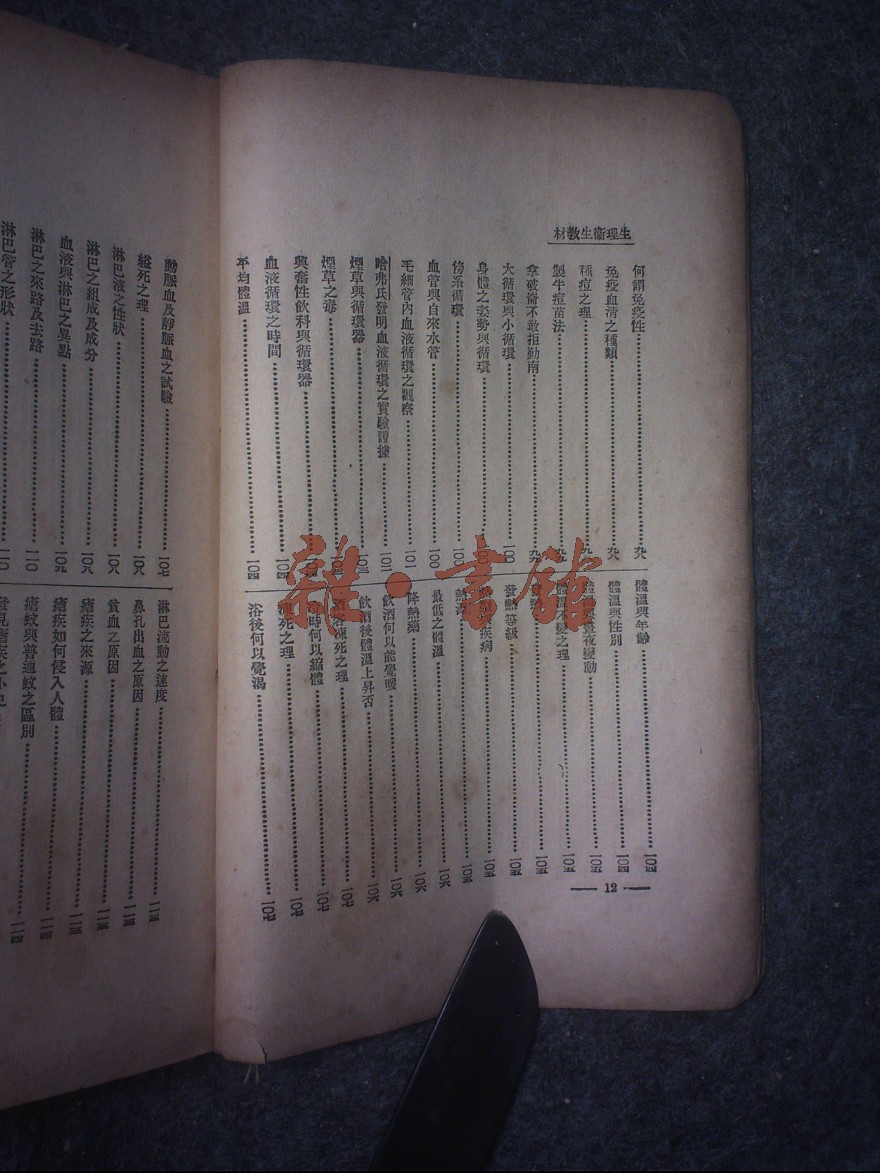 生理衞生教材
何謂免疫性 九八
免疫血清之種類 九八
種痘之理 九
製牛痘苗法 九九
拿破崙不敢拒勤南 九九
大循環與小循環 一〇〇
身體之姿勢與循環 一〇〇
傍系循環 一〇〇
血管與自來水管 一〇〇
毛細管內血液循環之觀察 一〇一
哈弗氏發明血液循環之實驗證據 一〇二
煙草與循環器 一〇三
煙草之毒
興奮性飲料與循環器
血液循環之時間 一〇四
平均體溫 一〇四
體溫與年齡 一〇四
體溫與性別 一〇四
體溫與晝夜變動 一〇五
體溫不變之理 一〇五
一〇五
發熱等級 一〇五
疾病 一〇五
一〇五
最低之體溫 一〇六
降熱藥 一〇六
飲酒何以能覺暖 一〇六
飲酒後體溫上昇否 一〇六
凍死之理 一〇七
時何以縮體 一〇七
死之理 一〇七
浴後何以覺渴 一〇七
— 12 —
動脈血及靜脈血之試驗 一〇七
縊死之理 一〇八
淋巴液之性狀 一〇八
淋巴之組成及成分 一〇八
血液與淋巴之異點 一〇九
淋巴之來路及去路 一一〇
淋巴管之形狀 一一〇
淋巴流動之速度 一一三
鼻孔出血之原因 一一三
貧血之原因 一一三
瘧疾之來源 一一三
瘧疾如何侵入人體 一一四
瘧蚊與普通蚊之區別 一一四
發見瘧疾之小史
雜·書館